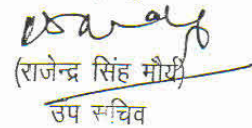 (राजेन्द्र सिंह मौर्य)
उप सचिव